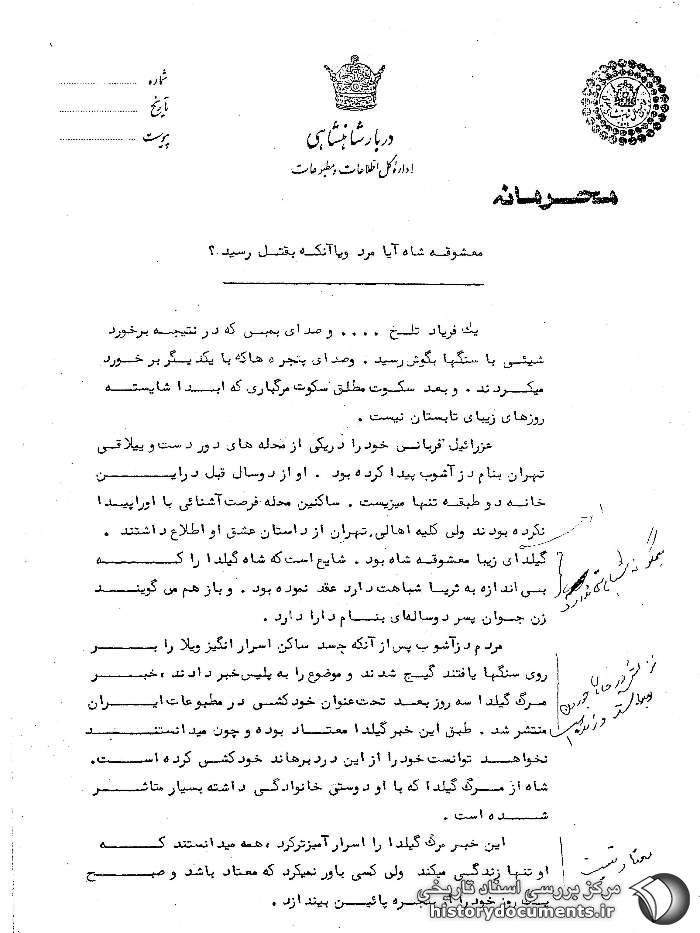 شماره
تاریخ
پیوست
دربار شاهنشاهی
اداره کل اطلاعات و مطبوعات
محرمانه
معشوقه شاه آیا مرد ویا آنکه بقتل رسید ؟
یک فریاد تلخ .... و صدای بمبی که در نتیجه برخورد
شیئی با سنگها بگوش رسید . وصدای پنجره هاکه با یکدیگر برخورد
میکردند . و بعد سکوت مطلق سکوت مرگباری که ابدا شایسته
روزهای زیبای تابستان نیست .
عزرائیل قربانی خود را دریکی از محله های دور دست و ییلاقی
تهران بنام دزآشوب پیدا کرده بود . او از دوسال قبل دراین
خانه دو طبقه تنها میزیست . ساکنین محله فرصت آشنائی با اوراپیدا
نکرده بودند ولی کلیه اهالی تهران از داستان عشق او اطلاع داشتند .
گیلدای زیبا معشوقه شاه بود . شایع است که شاه گیلدا را که
بی اندازه به ثریا شباهت دارد عقد نموده بود . و باز هم می گویند
زن جوان پسر دوساله‌ای بنام دارا دارد .
مردم دزآشوب پس از آنکه جسد ساکن اسرار انگیز ویلا را بر
روی سنگها یافتند گیج شدند و موضوع را به پلیس خبر دادند ، خبر
مرگ گیلدا سه روز بعد تحت عنوان خودکشی در مطبوعات ایران
منتشر شد . طبق این خبر گیلدا معتاد بوده و چون میدانست
نخواهد توانست خود را از این درد برهاند خودکشی کرده است.
شاه از مرگ گیلدا که با او دوستی خانوادگی داشته بسیار متاثر
شده است .
این خبر مرگ گیلدا را اسرار آمیزترکرد ، همه میدانستند که
او تنها زندگی میکند ولی کسی باور نمیکرد که معتاد باشد و صبح
یک روز خود را از پنجره پائین بیندازد .
معتاد نیست
مرکز بررسی اسناد تاریخی
historydocuments.ir